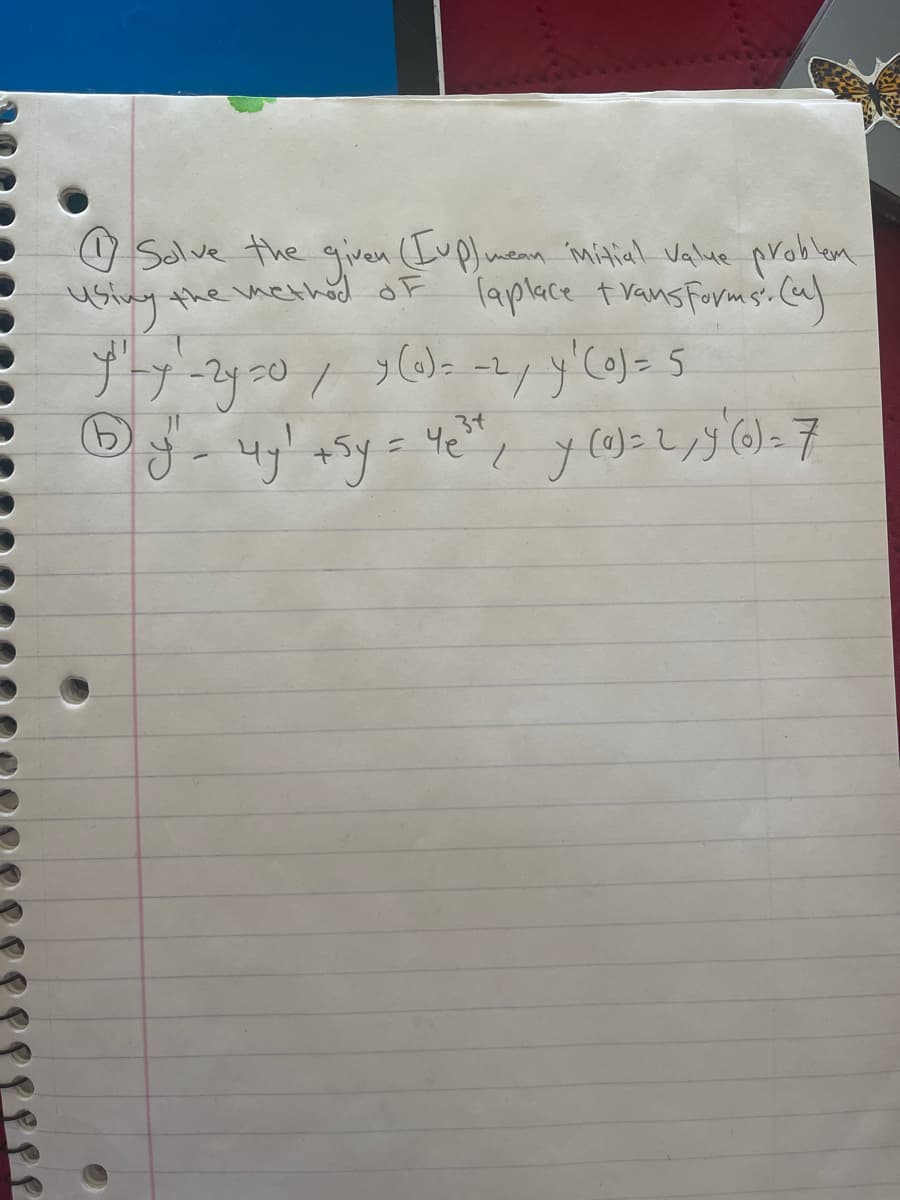 ① Solve the given (Ivp) mean initial value problem
using the method of laplace transforms. (a)
y'' - y' - 2y = 0 , y(0) = -2, y'(0) = 5
ⓑ y'' - 4y' + 5y = 4e³ᵗ, y(0) = 2, y'(0) = 7